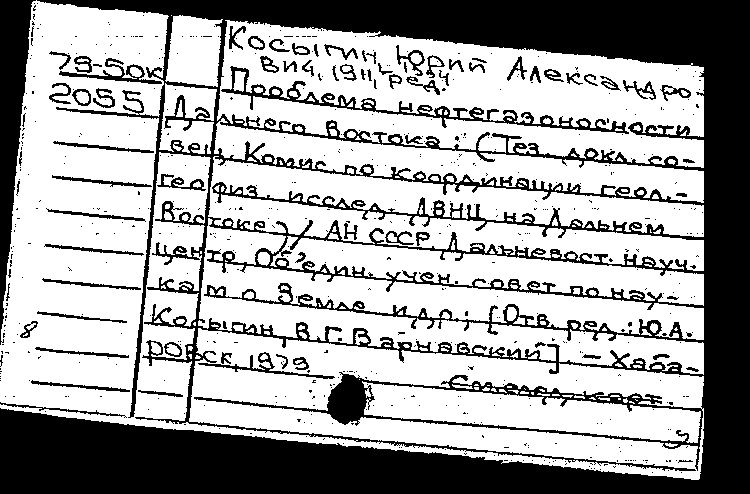 Косыгин, Юрий Александро-
вич, 1911, ред.
79-50к
2055
Проблема нефтегазоносности
Дальнего Востока : (Тез. докл. со-
вещ. Комис. по координации геол.-
геофиз. исслед. ДВНЦ на Дальнем
Востоке) / АН СССР, Дальневост. науч.
центр, Объедин. учен. совет по нау-
кам о Земле и др.; [Отв. ред.: Ю.А.
Косыгин, В.Г. Варнавский]. - Хаба-
ровск, 1979
См. след. карт.
8